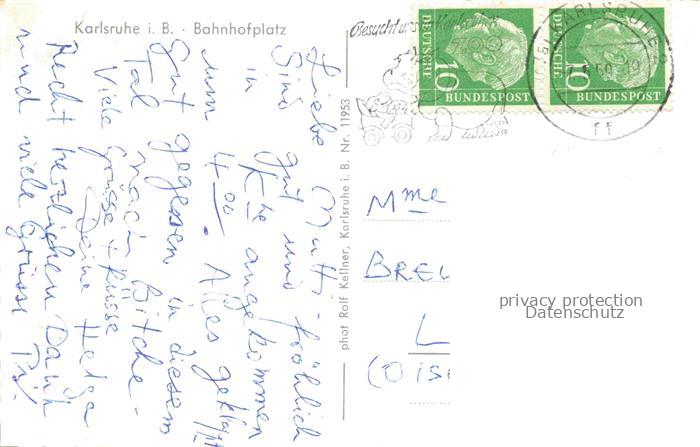 Karlsruhe i. B. · Bahnhofplatz
Liebe Mutti -
Sind gut und fröhlich
in K'he angekommen
um 4 00. Alles geklappt
Gut gegessen in diesem
Tal nach Bitche -
Viele Grüsse + Küsse
Deine Helga
Recht herzlichen Dank
und viele Grüsse
phot Rolf Kellner, Karlsruhe i. B. Nr. 11953
Besucht
DEUTSCHE
10
BUNDESPOST
DEUTSCHE
10
BUNDESPOST
KARLSRUHE
ff
Mme
BREU
L
(OISE
privacy protection
Datenschutz